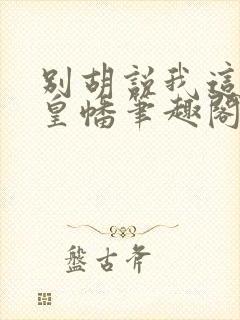 别胡說我這
皇幡筆趣閣
盤古斧